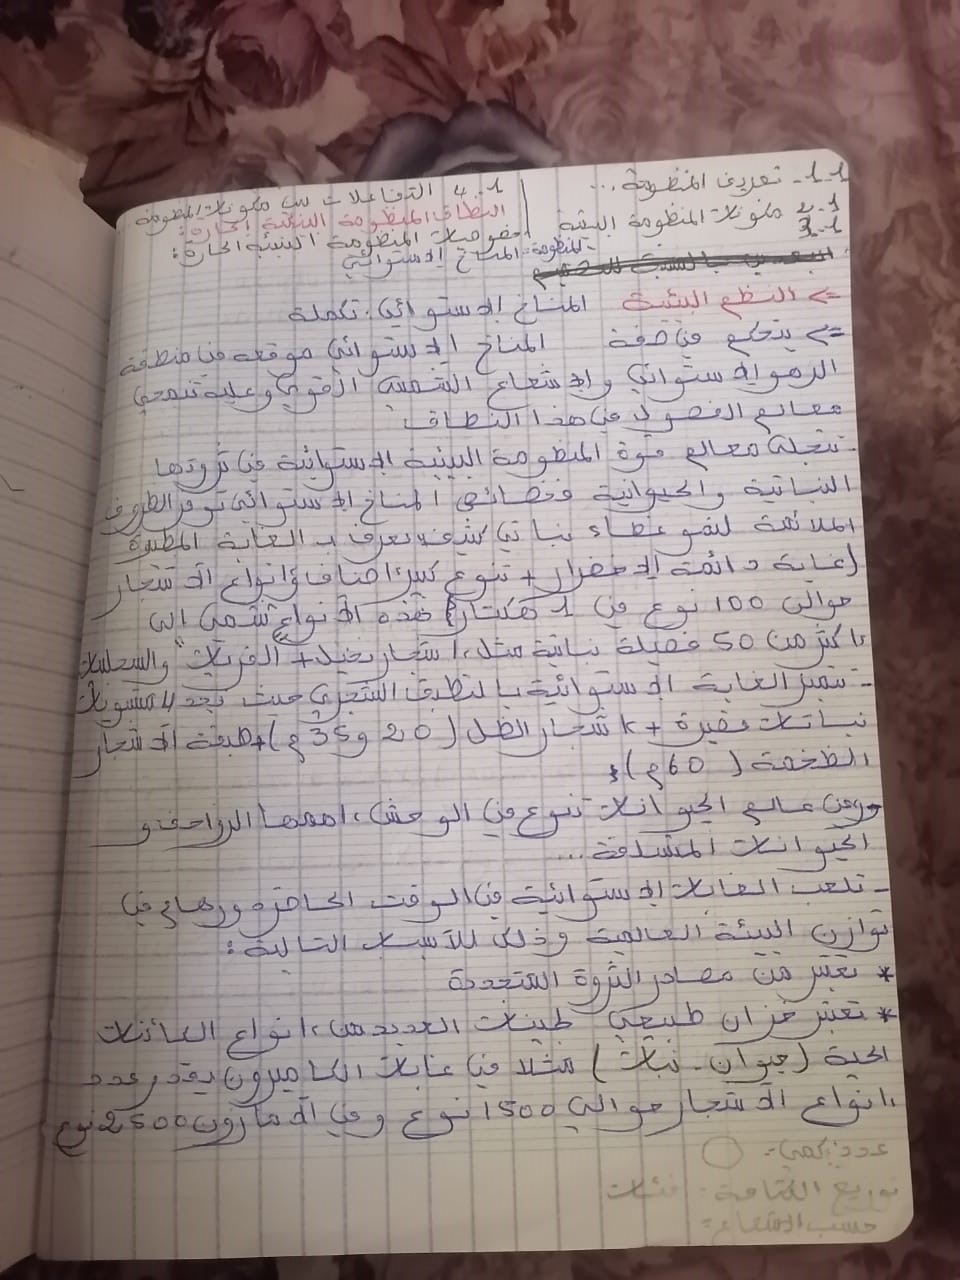 1.1- تعريف المنظومة...
2.1 مكونات المنظومة البيئية
3.1
4.1 التفاعلات بين مكونات المنظومة
النطاق المنظومة البيئية الحارة:
خصوصيات المنظومة البيئية الحارة:
-المنظومة: المناخ الاستوائي
=> النظم البيئية المناخ الاستوائي. تكملة
=> يتحكم في صفة المناخ الاستوائي موقعه في منطقة
الرهو الاستوائي والاشعاع الشمسي القوي وعليه تنمحي
معالم الفصول في هذا النطاق.
- تتجلى معالم قوة المنظومة البيئية الاستوائية في ثروتها
النباتية والحيوانية فخصائص المناخ الاستوائي توفر الظروف
الملائمة لنمو غطاء نباتي كثيف يعرف ب الغابة المطيرة
(غابة دائمة الاخضرار + تنوع كبير اصناف وانواع الاشجار
حوالي 100 نوع في 1 هكتار) هذه الأنواع تنتمي الى
اكثر من 50 فصيلة نباتية مثل، اشجار نخيل + القرنيات والسحلبيات
- تتميز الغابة الاستوائية بالتطبق الشجري حيث نجد 4 مستويات
نباتات صغيرة + اشجار الظل (20 و 35م) + طبقة الاشجار
الضخمة (60م)
- ومن عالم الحيوانات تنوع في الوحيش، اهمها الزواحف و
الحيوانات المتسلقة...
- تلعب الغابات الاستوائية في الوقت الحاضر دورا هام في
توازن البيئة العالمية وذلك للأسباب التالية:
* تعتبر من مصادر الثروة المتجددة
* تعتبر خزان طبيعي لجينات العديد من انواع الكائنات
الحية (حيوان - نبات) مثلا في غابات الكاميرون يقدر عدد
انواع الأشجار حوالي 1500 نوع وفي الأمازون 2500 نوع
عدد
توزيع الكثافة: فئات
حسب الاشعاع =